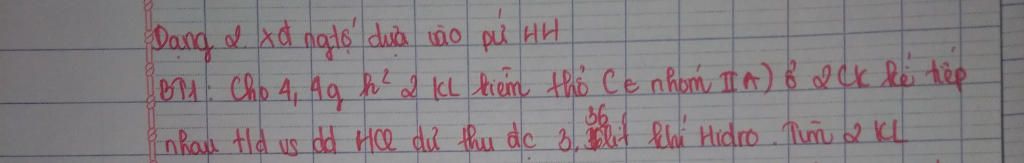 Dạng 2 xđ ngtố dựa vào pứ HH
BT1: Cho 4,4g h² 2 KL kiềm thổ (∈ nhóm IIA) ở 2 CK kế tiếp
nhau t/d vs dd HCl dư thu đc 3,36 lít khí Hidro. Tìm 2 KL